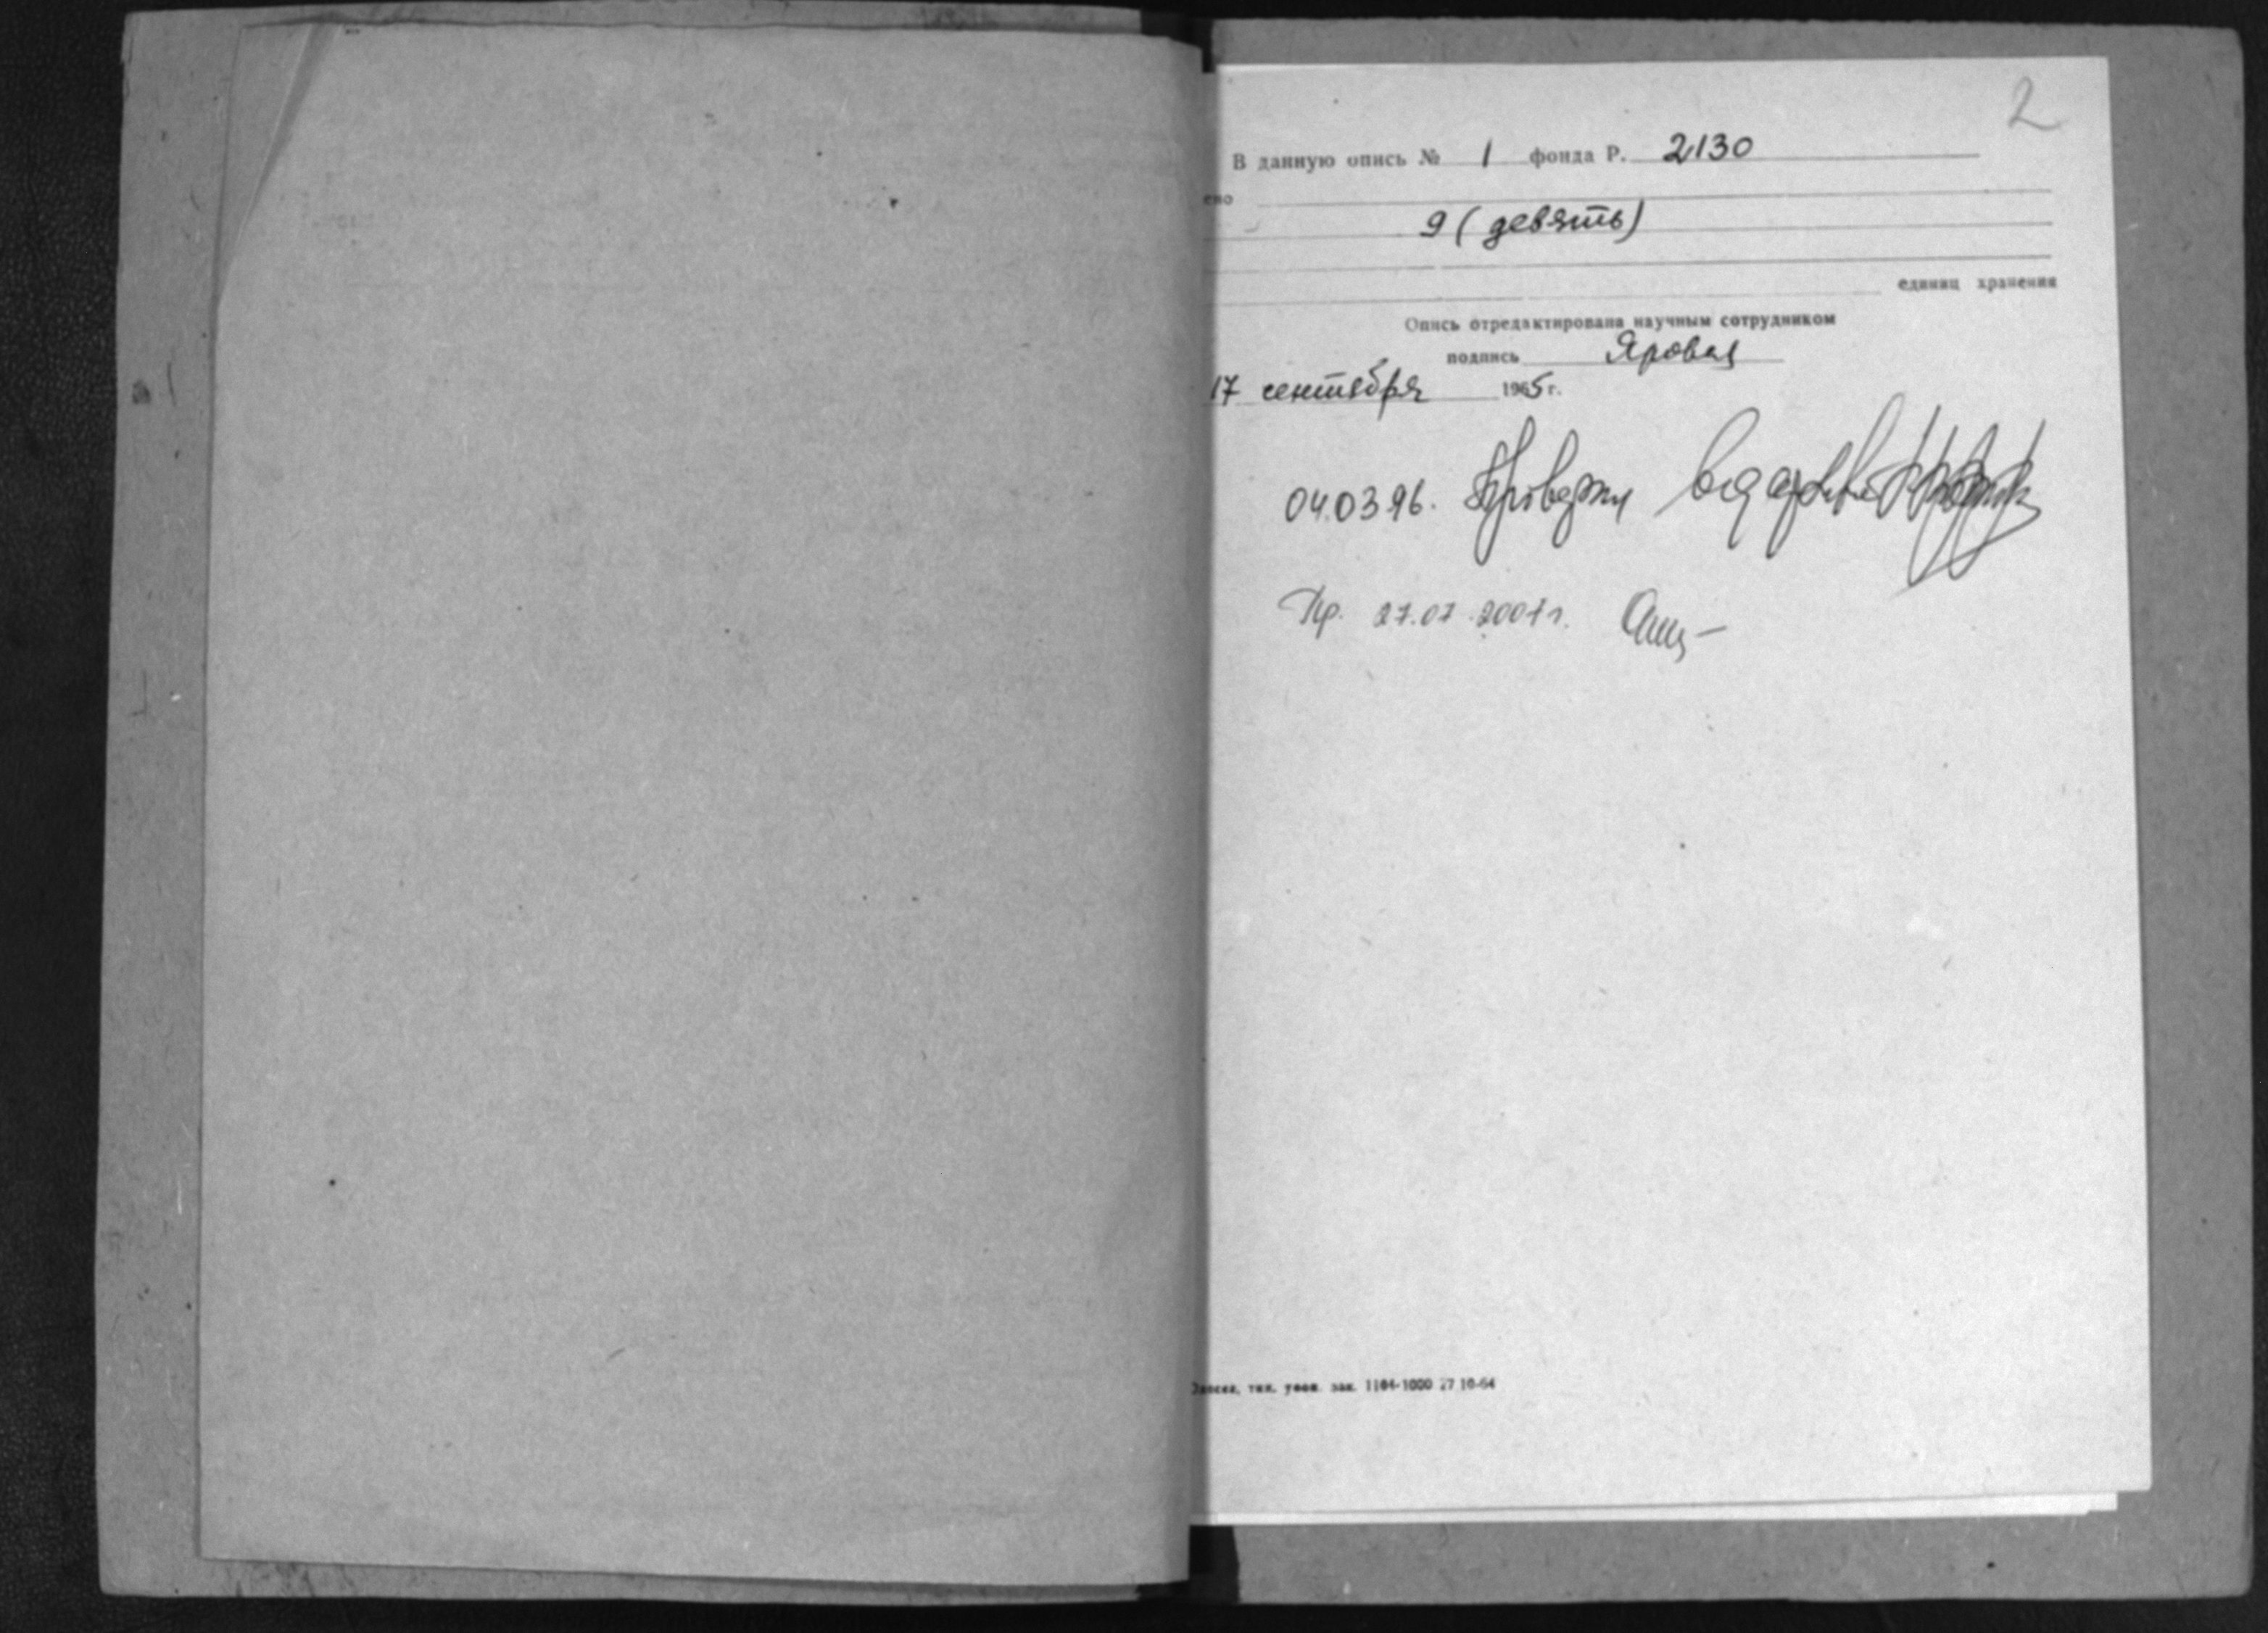 2
В данную опись № 1 фонда Р. 2130
ено
9 (девять)
единиц хранения
Опись отредактирована научным сотрудником
подпись Яровая
17 сентября 1965 г.
04.03.96.
Пр. 27.07.2001г.
тип. зак. 1104-1000 27 10-64